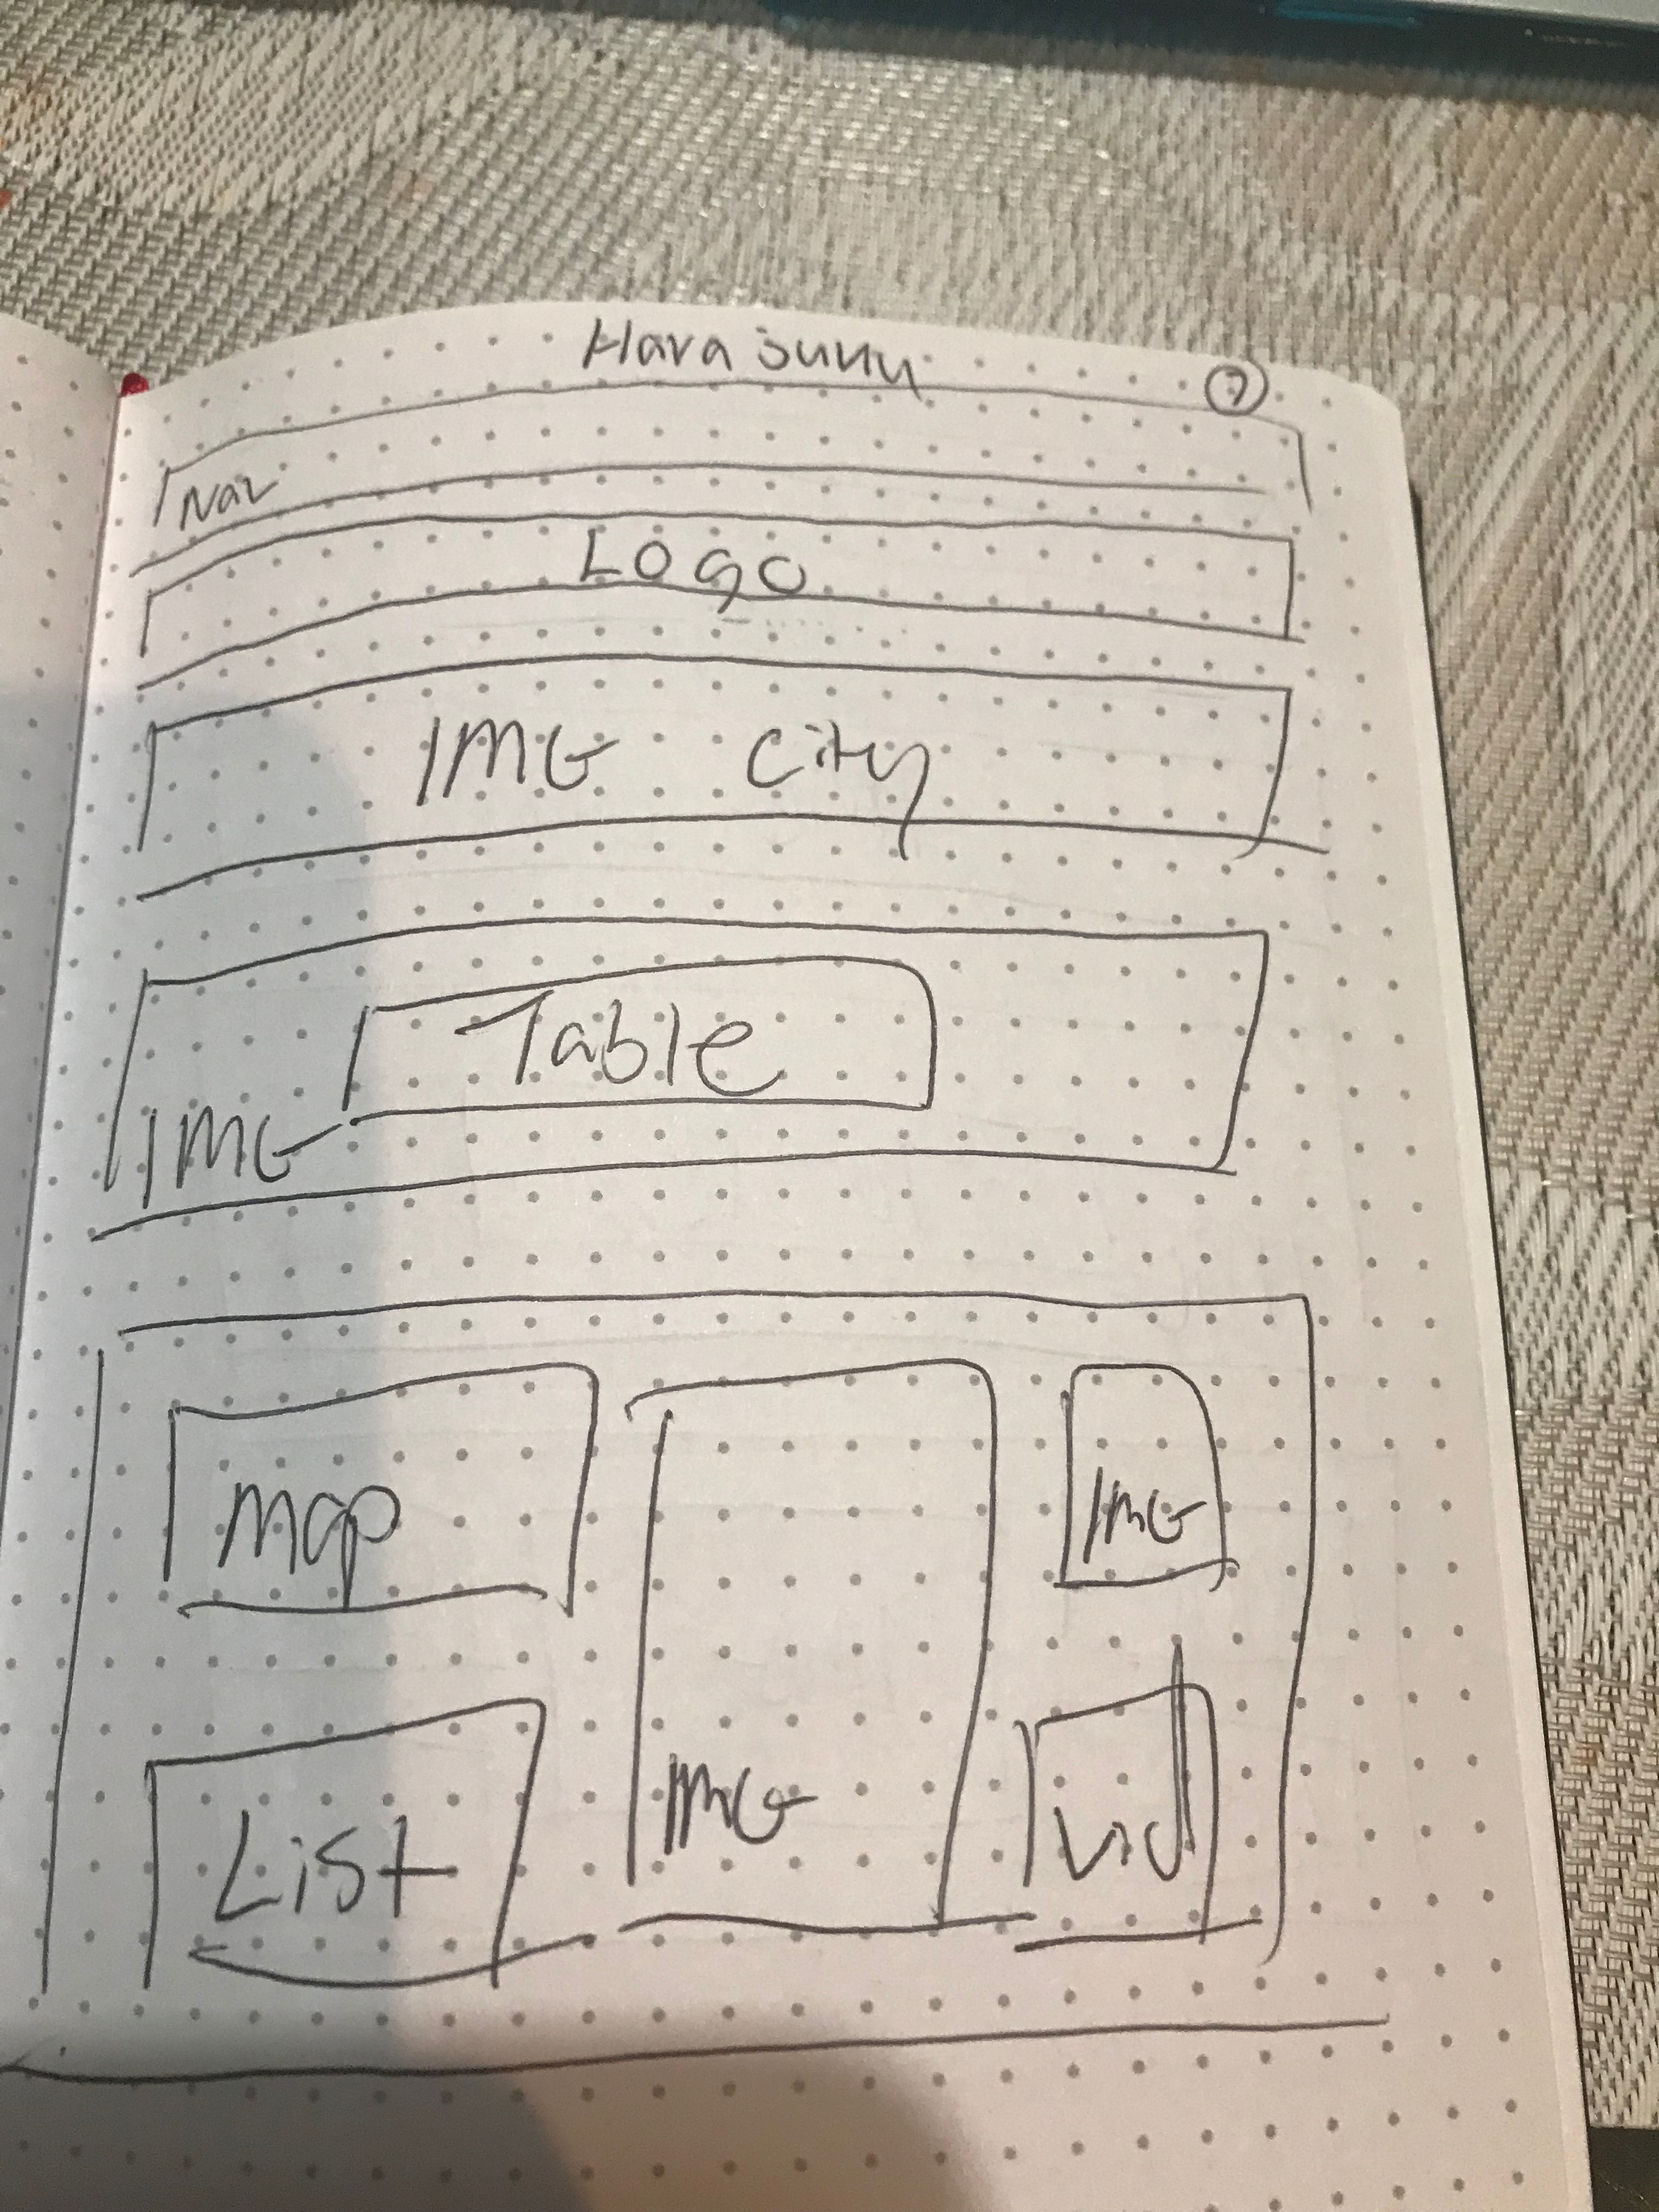 Nav
Logo
IMG City
Table
IMG
Map
IMG
List
IMG
Vid